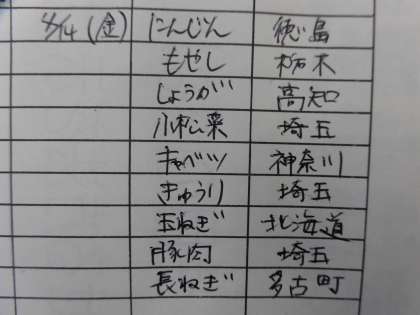 4/14(金) にんじん 徳島
もやし 栃木
しょうが 高知
小松菜 埼玉
キャベツ 神奈川
きゅうり 埼玉
玉ねぎ 北海道
豚肉 埼玉
長ねぎ 多古町